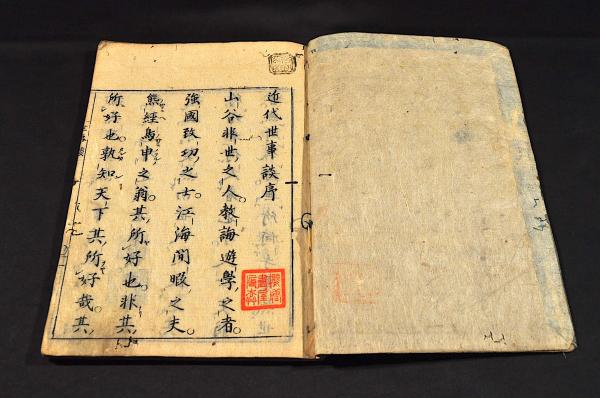 近代世事談序
山谷非世之人。教誨遊學之者。
強國致功之古。江海間暇之夫。
熊經鳥申之翁。其所好也。非其
所好也。孰知天下其所好哉。其